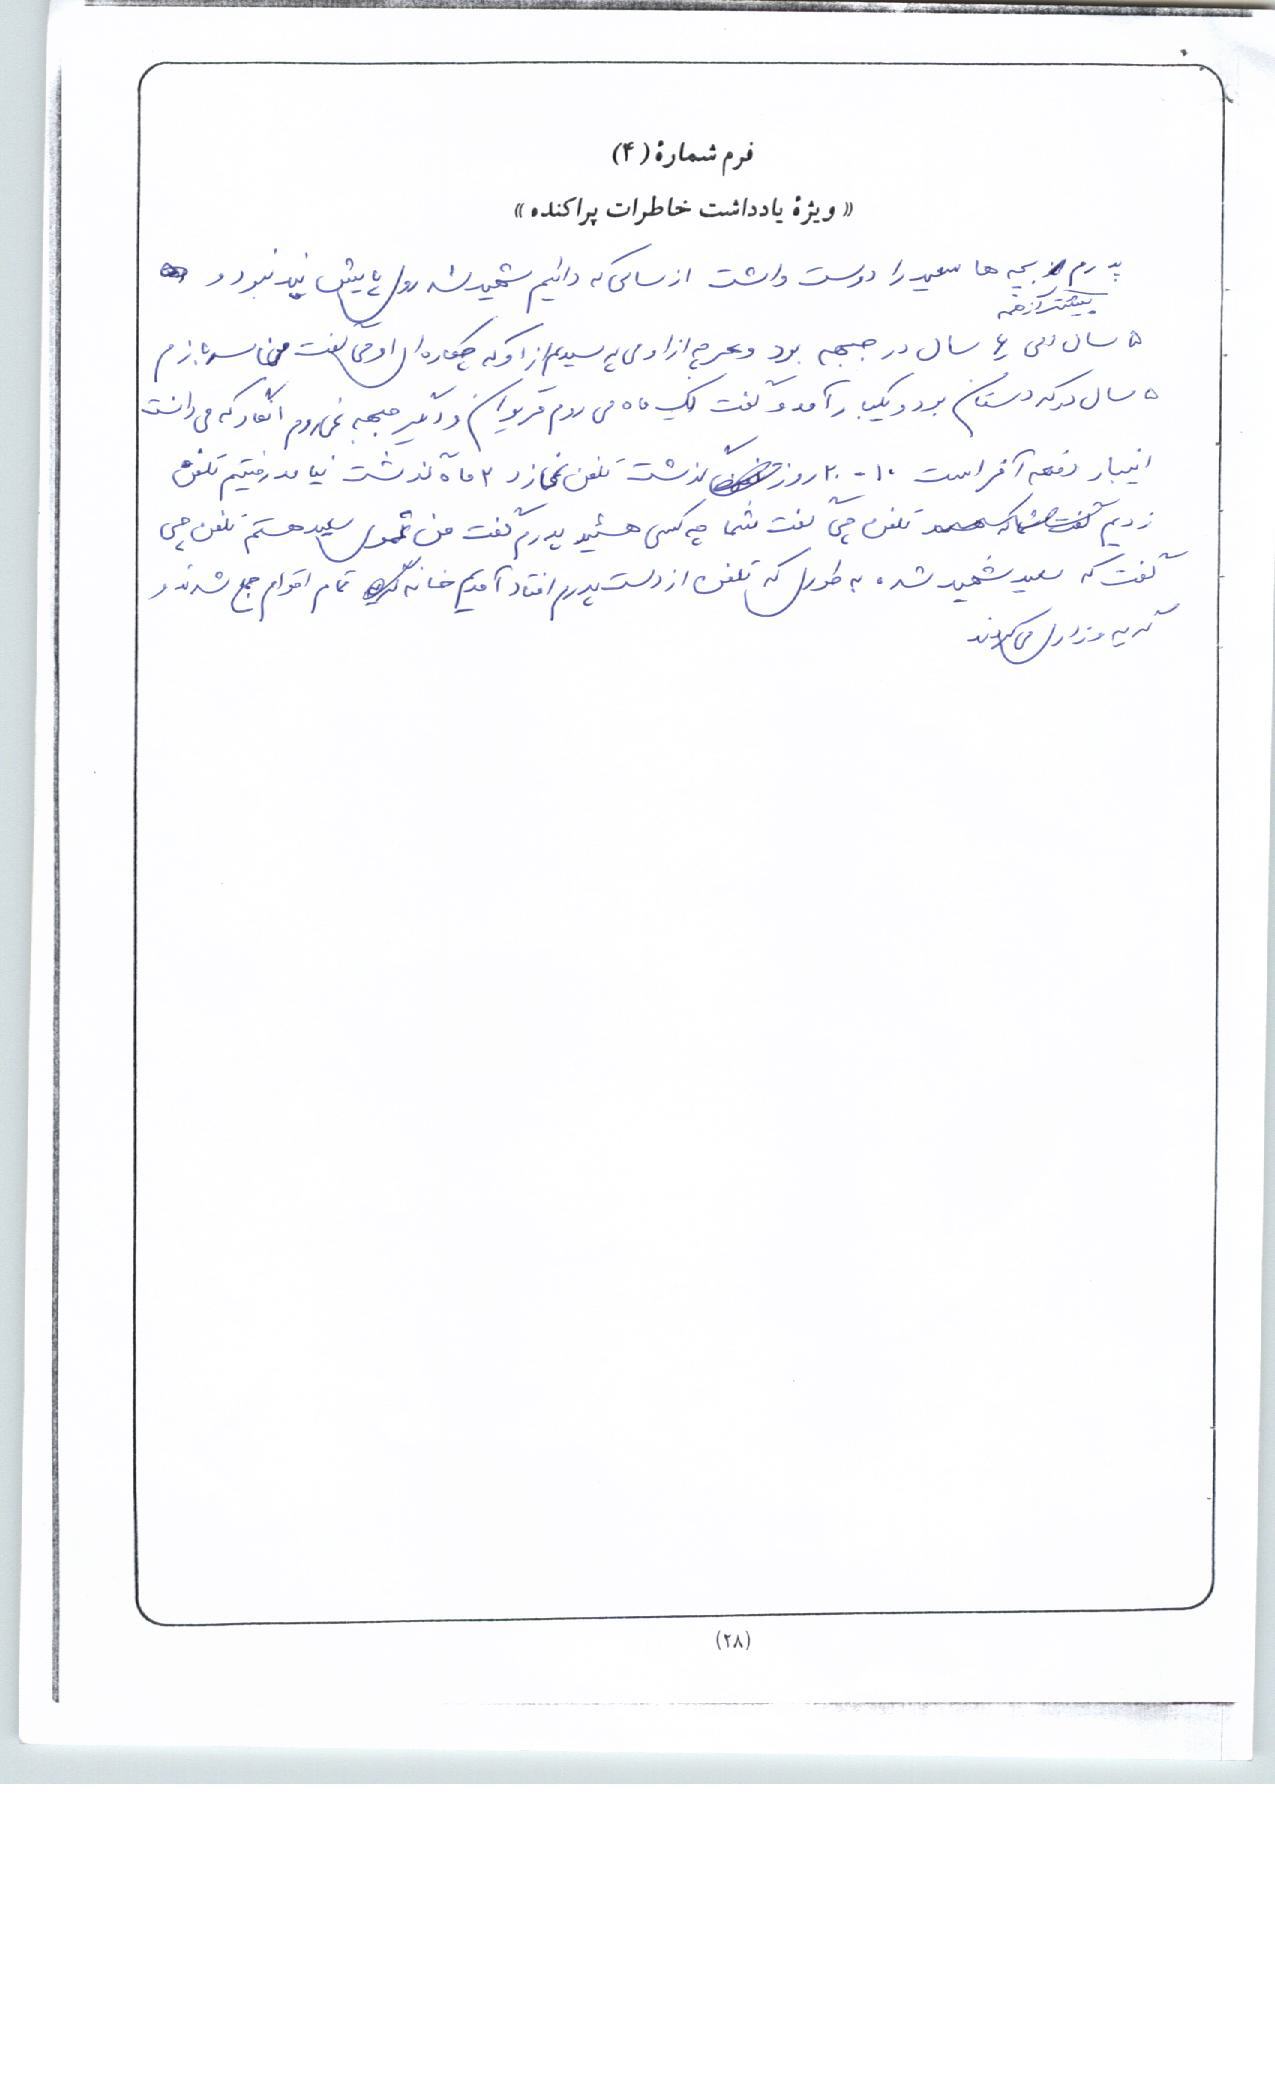 فرم شمارهٔ (۴)
« ویژهٔ یادداشت خاطرات پراکنده »
پدرم از بچه ها سعید را دوست داشت از ساکی که دائیم شهید شد روی پایش بند نبود و
بیشتر از همه
۵ سال الی ۶ سال در جبهه بود و هر چه از او می پرسیدیم از او که چکاره ای او می گفت من سربازم
۵ سال در کردستان بود و یکبار آمد و گفت یک ماه می روم مریوان و دیگر جبهه نمی روم انگار که می دانست
اینبار دفعه آخر است ۱۰ - ۲۰ روز گذشت تلفن نمی زد ۲ ماه گذشت نیامد رفتیم تلفن
زدیم تلفن چی گفت شما چه کسی هستید پدرم گفت من عموی سعید هستم تلفن چی
گفت که سعید شهید شده به طوری که تلفن از دست پدرم افتاد آمدیم خانه تمام اقوام جمع شدند و
گریه و زاری می کردند
(۲۸)